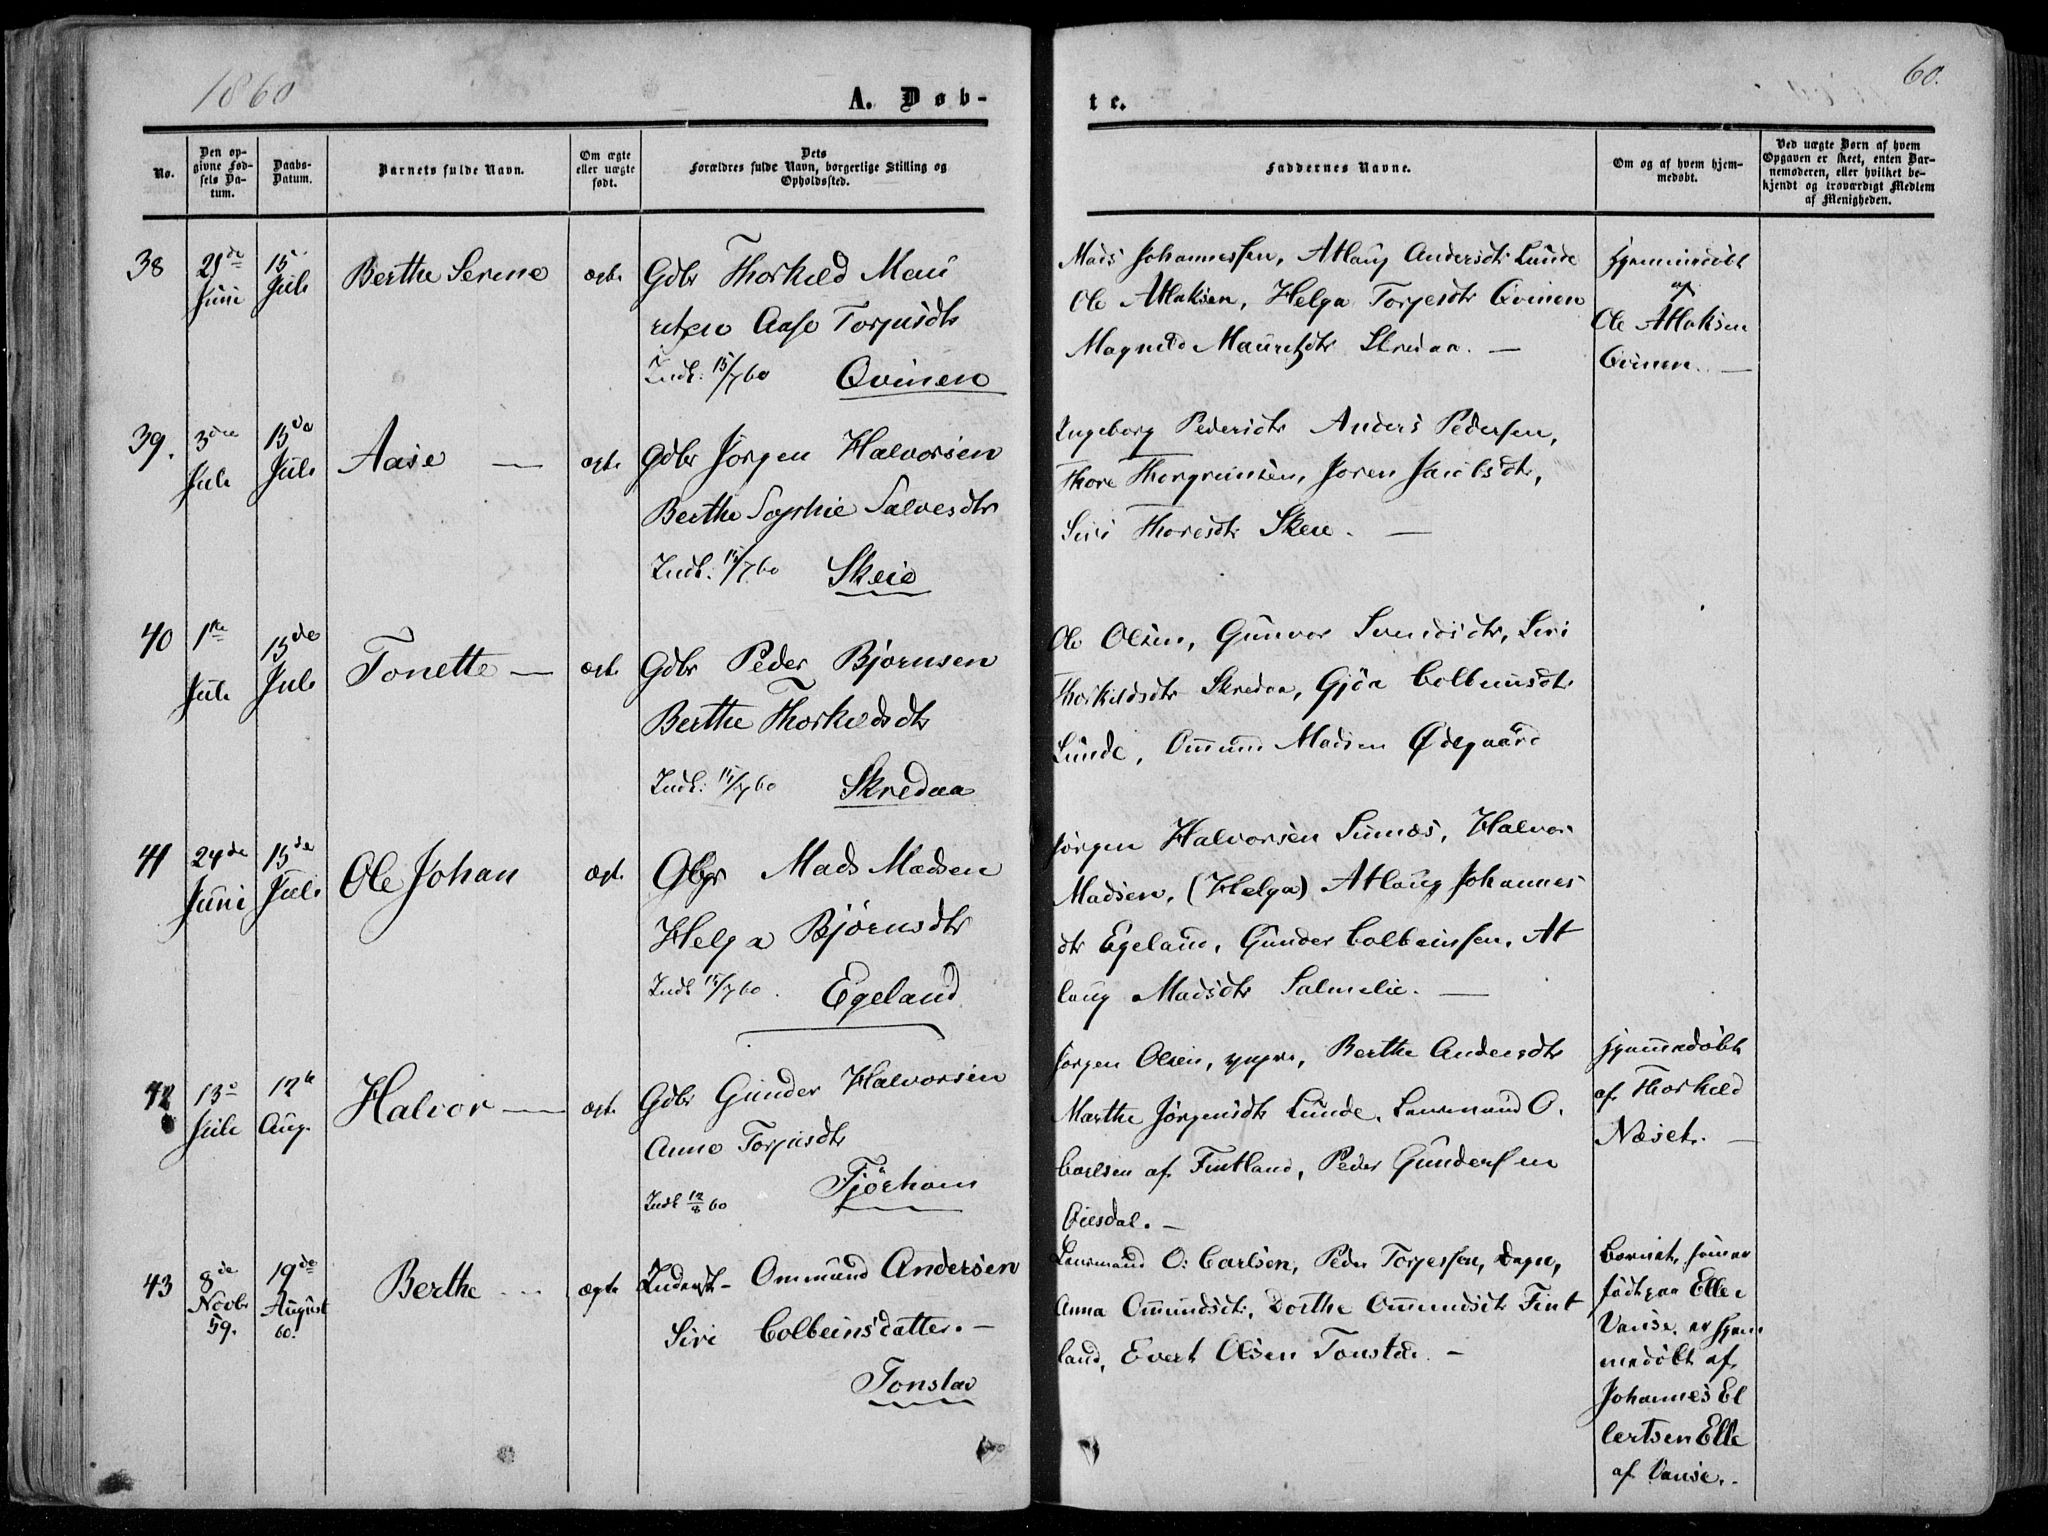 1860
A. Døb-
te.
60.
No.
Den op-
givne Fød-
sels Da-
tum.
Daabs-
Datum.
Barnets fulde Navn.
Om ægte
eller uægte
født.
Dets
Forældres fulde Navn, borgerlige Stilling og
Opholdssted.
Faddernes Navne.
Om og af hvem hjem-
medøbt.
Ved uægte Børn af hvem
Opgaven er skeet, enten Bar-
nemoderen, eller hvilket be-
kjendt og troværdigt Medlem
af Menigheden.
38
21de
Juni
15
Juli
Berthe Serine
ægte
Gdbr Thorkild Mau
ritsen Aase Torjusdtr
Indt: 15/7 60 Qvinen
Mads Johannessen, Atlaug Andersdtr Lunde
Ole Atlaksen, Helga Torjesdtr Qvinen
Magnild Mauritzdtr Skredaa. —
Hjemmedøbt
af
Ole Atlaksen
Qvinen. —
39.
3die
Juli
15de
Juli
Aase —
ægte
Gdbr Jørgen Halvorsen
Berthe Sophie Salvesdtr
Indt: 15/7 60 Skeie
Ingeborg Pedersdtr Anders Pedersen,
Thore Thorgrimsen, Joren Jacobsdtr,
Siri Thoresdtr Skeie. —
40
1ste
Juli
15de
Juli
Tonette —
ægte
Gdbr Peder Bjørnsen
Berthe Thorkildsdtr
Indt: 15/7 60 Skredaa
Ole Olsen, Gunvor Svendsdtr, Siri
Thorkildsdtr Skredaa, Gjøa Colbeinsdtr
Lunde, Omund Madsen Ødegaard
41
24de
Juni
15de
Juli
Ole Johan
ægt.
Gbr Mads Madsen
Helga Bjørnsdtr
Indt 15/7 60. Egeland
Jørgen Halvorsen Sinnæs, Halvor
Madsen, (Helga) Atlaug Johannes
dtr Egeland, Gunder Colbeinsen, At
laug Madsdtr Salmelie. —
42
13de
Juli
12te
Aug.
Halvor —
ægte
Gdbr Gunder Halvorsen
Anne Torjusdtr
Indt 12/8 60 Fjørhom
Jørgen Olsen, yngre, Berthe Andersdtr
Marthe Jørgensdtr Lunde, Lensmand O.
Carlsen af Fintland, Peder Gundersen
Øiesdal. —
Hjemmedøbt
af Thorkild
Næset. —
43
8de
Novbr
59.
19de
August
60.
Berthe
ægte
Inderst- Ommund Andersen
Siri Colbeinsdatter. —
Tonstad
Lensmand O: Carlsen, Peder Torjessen,
Anna Omundsdtr, Dorthe Omundsdtr Fint
land, Evert Olsen Tonstad. —
Barnet, som er
født paa Elle i
Vanse, er hjem
medøbt af
Johannes El
lertsen Elle
af Vanse.